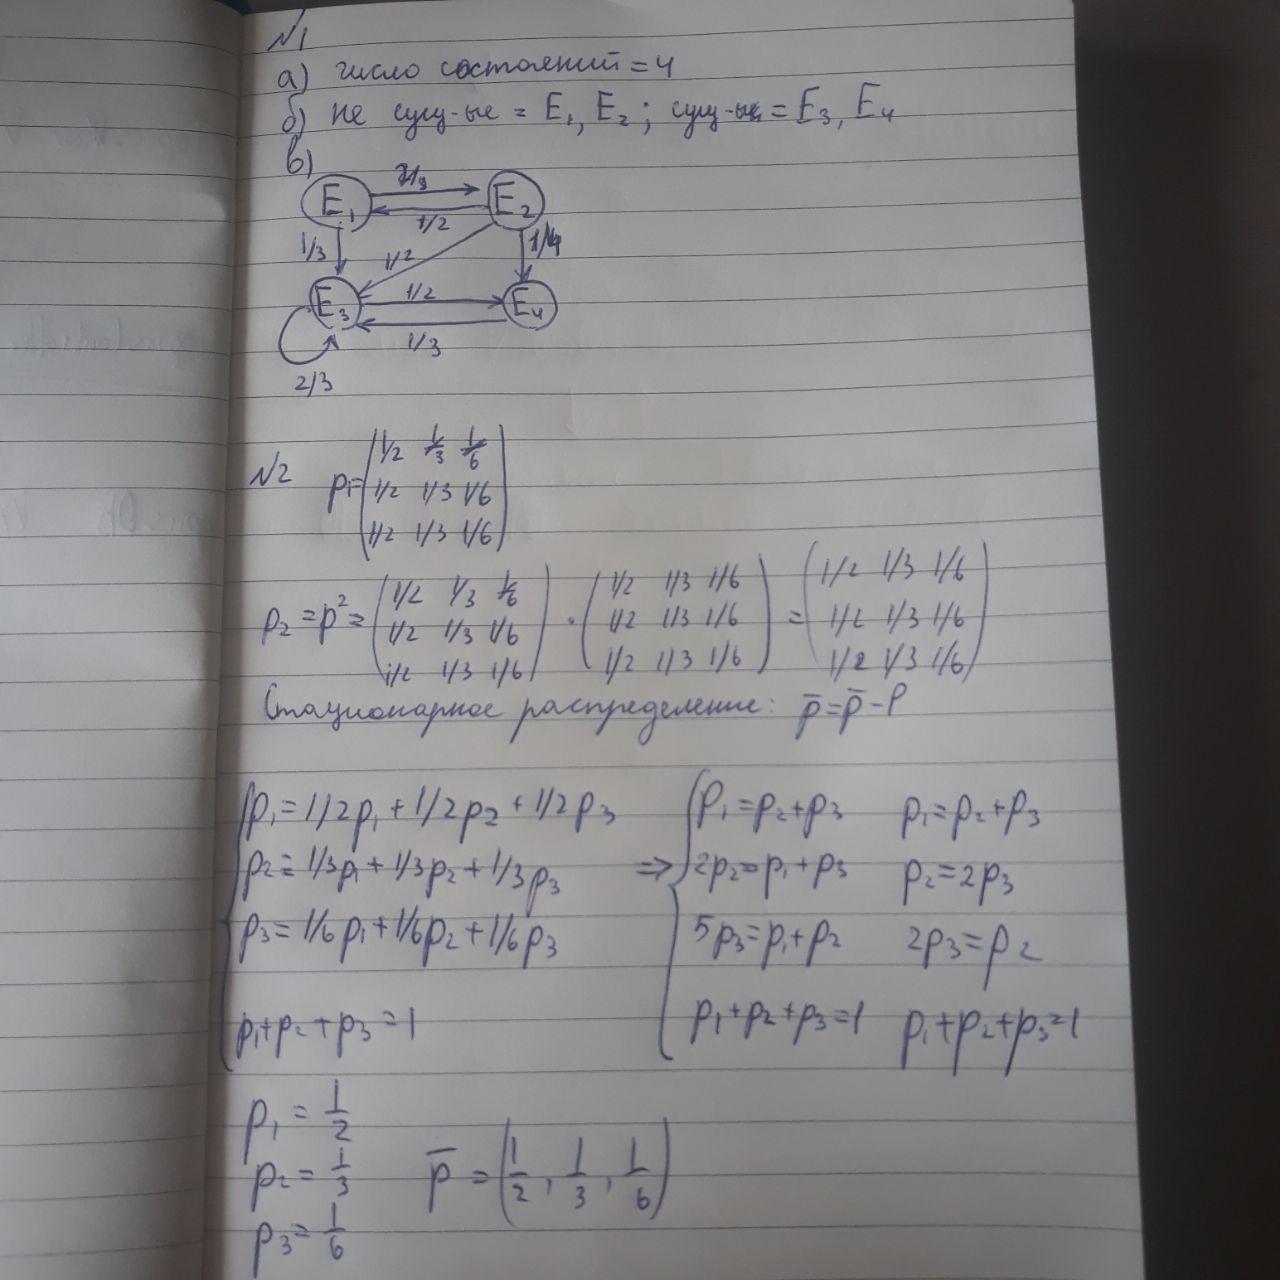 №1
а) число состояний = 4
б) не сущ-ые = E₁, E₂ ; сущ-ые = E₃, E₄
в)
E₁ E₂
1/2
1/3 1/2 1/4
E₃ 1/2 E₄
1/3
2/3
№2 P₁= (1/2 1/3 1/6
1/2 1/3 1/6
1/2 1/3 1/6)
P₂ = P² = (1/2 1/3 1/6 · (1/2 1/3 1/6 = (1/2 1/3 1/6
1/2 1/3 1/6) 1/2 1/3 1/6) 1/2 1/3 1/6)
1/2 1/3 1/6 1/2 1/3 1/6 1/2 1/3 1/6
Стационарное распределение: p̄ = p̄ - P
{p₁ = 1/2p₁ + 1/2p₂ + 1/2p₃ {p₁ = p₂ + p₃ p₁ = p₂ + p₃
p₂ = 1/3p₁ + 1/3p₂ + 1/3p₃ => 2p₂ = p₁ + p₃ p₂ = 2p₃
p₃ = 1/6p₁ + 1/6p₂ + 1/6p₃ 5p₃ = p₁ + p₂ 2p₃ = p₂
p₁ + p₂ + p₃ = 1 p₁ + p₂ + p₃ = 1 p₁ + p₂ + p₃ = 1
p₁ = 1/2
p₂ = 1/3 p̄ = (1/2, 1/3, 1/6)
p₃ = 1/6